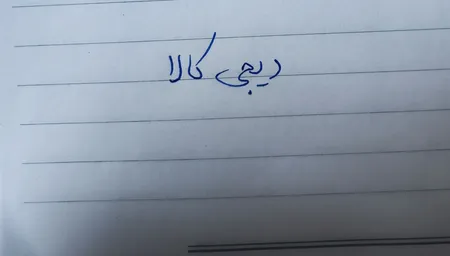 دیجی کالا